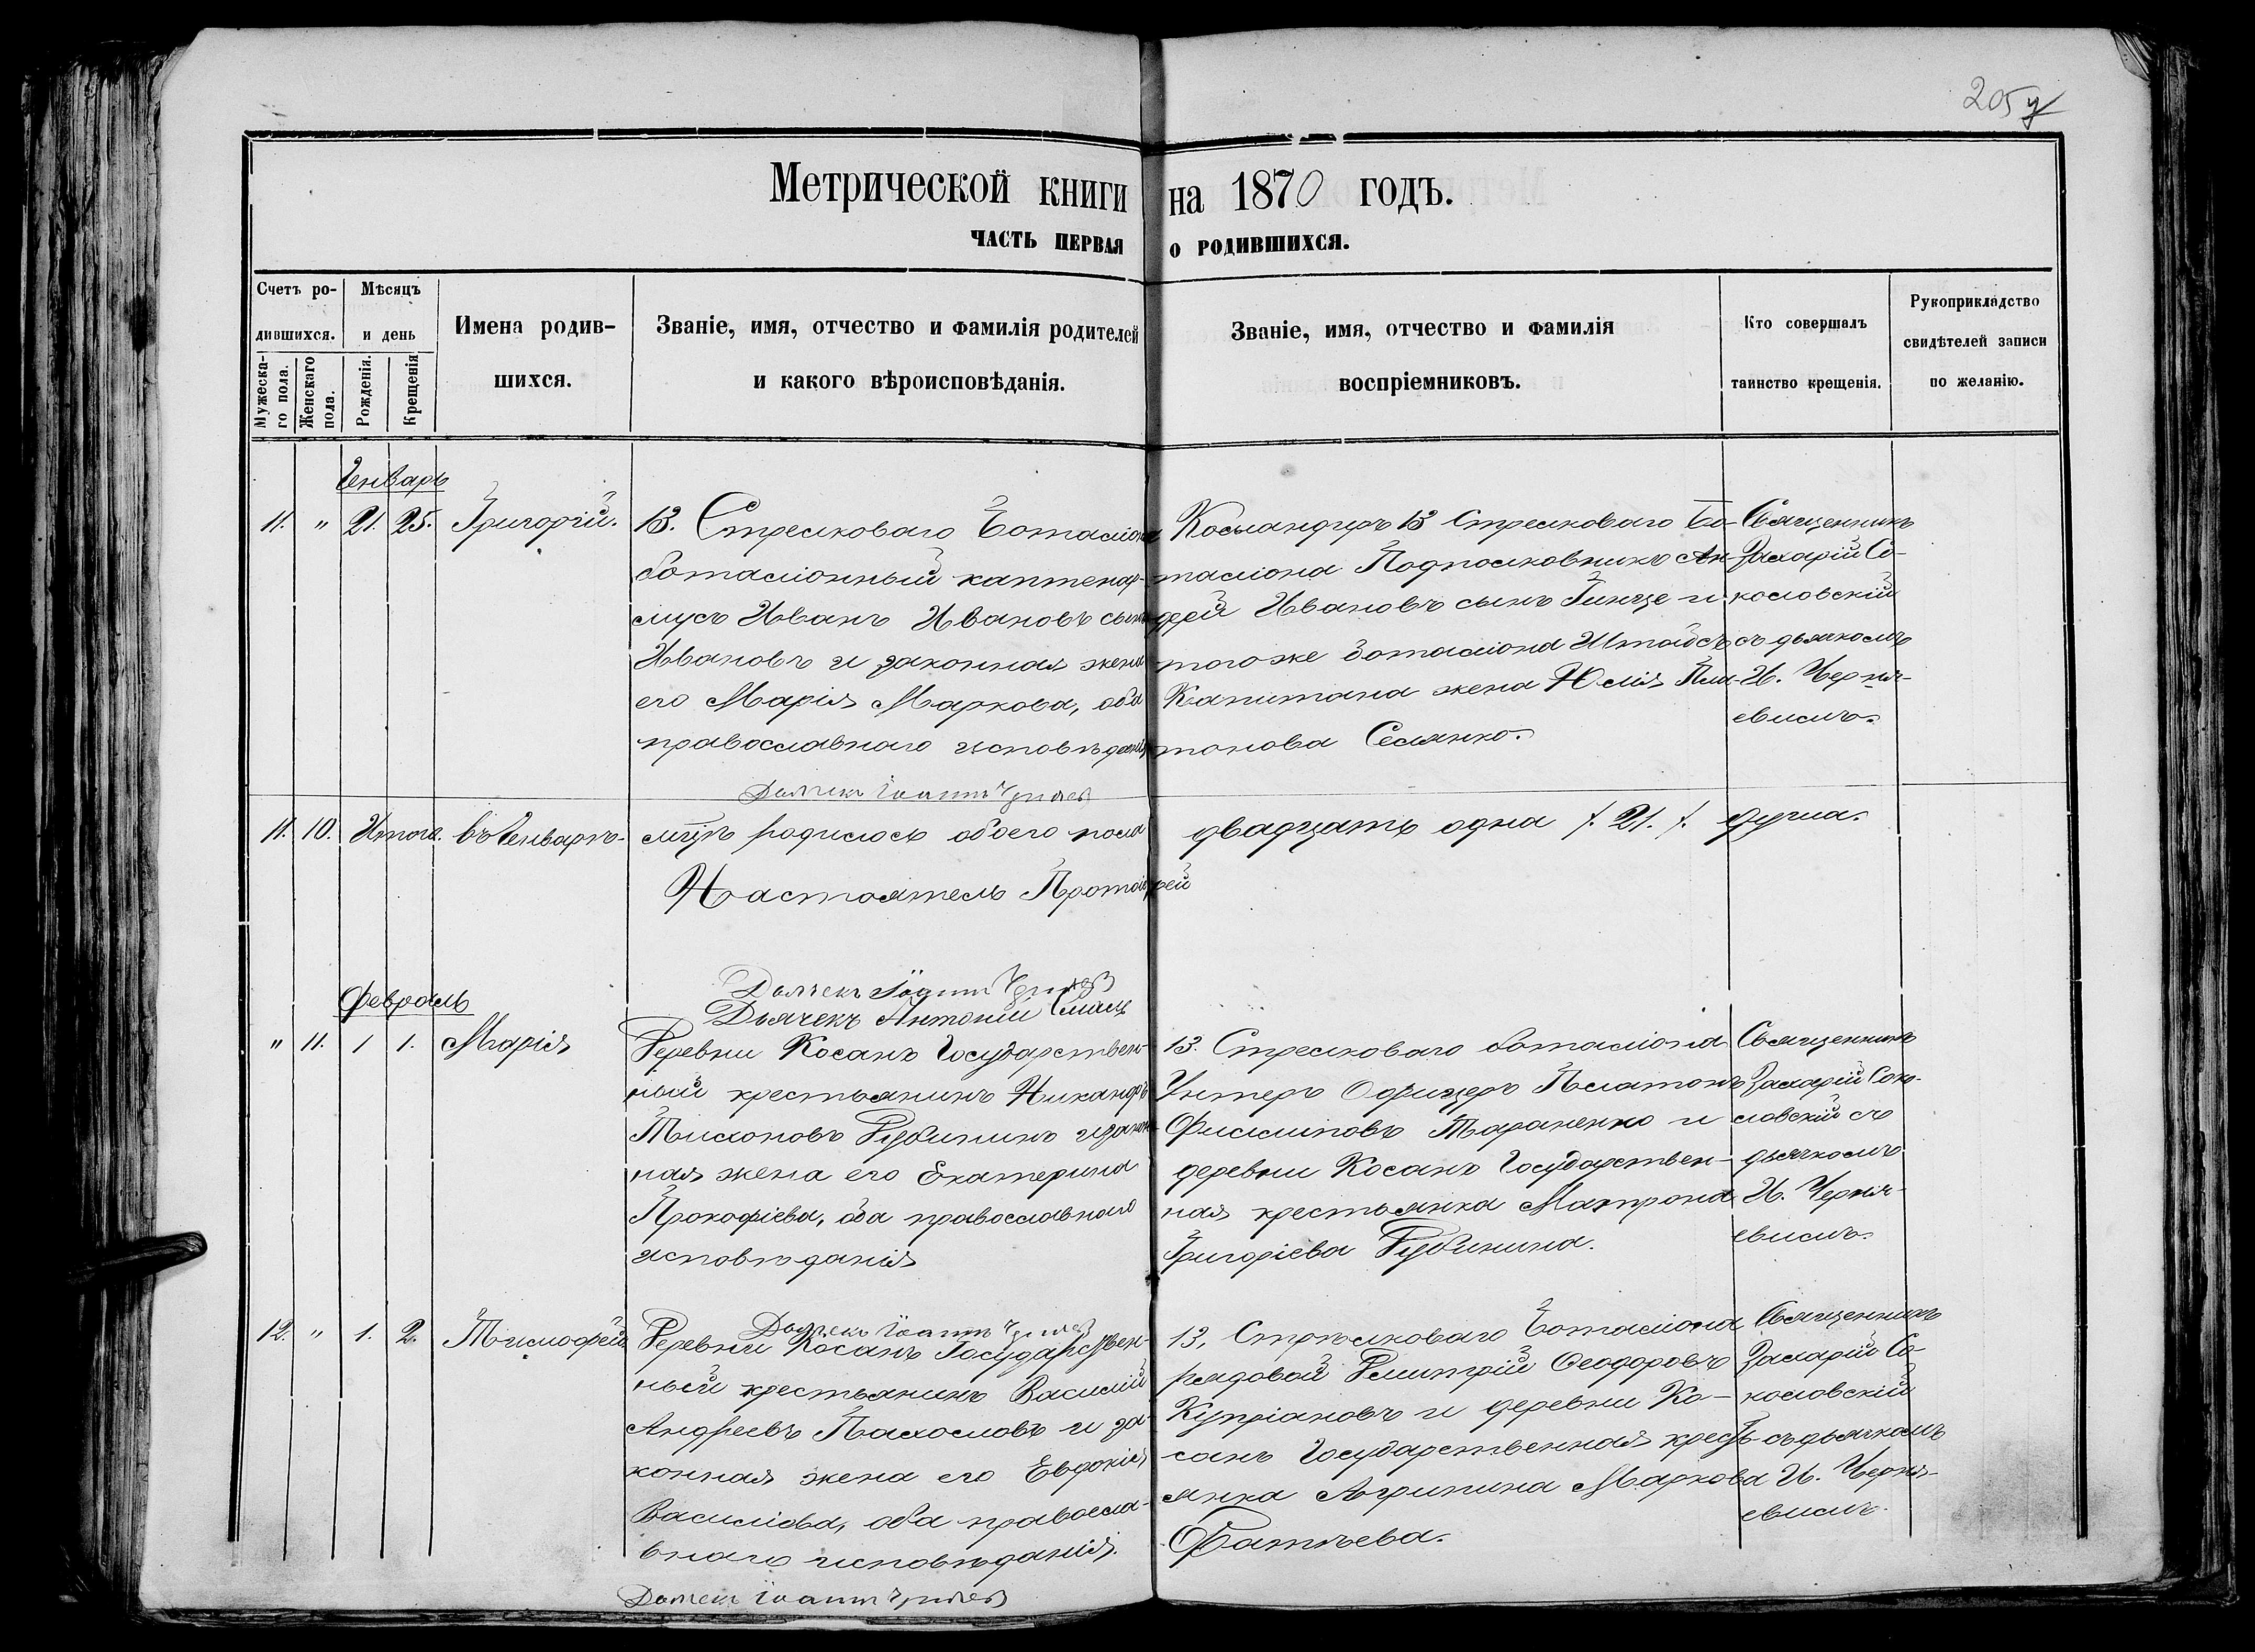 205
Метрической книги на 1870 годъ.
ЧАСТЬ ПЕРВАЯ О РОДИВШИХСЯ.
Счетъ ро-
дившихся.
Мужеска-
го пола.
Женскаго
пола.
Мѣсяцъ
и день
Рожденія.
Крещенія
Имена родив-
шихся.
Званіе, имя, отчество и фамилія родителей
и какого вѣроисповѣданія.
Званіе, имя, отчество и фамилія
воспріемниковъ.
Кто совершалъ
таинство крещенія.
Рукоприкладство
свидѣтелей записи
по желанію.
Генварь
11. " 21. 25. Григорій.
13. СтрелковагоБоталіона
боталіонный каптенар-
мусъ Иванъ Ивановъ сынъ
Ивановъ и законная жена
его Марія Маркова, оба
православнаго исповѣданія
Командиръ 13 Стрелковаго Бо-
таліона Подполковникъ Ан-
дрей Ивановъ сынъ Гинце и
тогоже боталіона Штабсъ
Капитана жена Юлія Пла-
тонова Селянко.
Священникъ
Захарій Со-
коловскій
съ дьячкомъ
И. Черня-
евымъ.
Дьячекъ Іоаннъ
11. 10. Итого въ Генварѣ мцѣ родилось обоего пола двадцать одна /. 21. /. душа.
Настоятель Протоіерей
Дьячекъ Іоаннъ
Дьячекъ Антоній
Февраль
" 11. 1 1. Марія
Деревни Косанъ Государствен-
ный крестьянинъ Никандръ
Тихоновъ Дубининъ и закон-
ная жена его Екатерина
Прокофіева, оба православнаго
исповѣданія
13. Стрелковаго боталіона
Унтеръ Офицеръ Платонъ
Филиповъ Тараненко и
деревни Косанъ Государствен-
ная крестьянка Матрона
Григоріева Дубинина.
Священникъ
Захарій Соко-
ловскій съ
дьячкомъ
И. Черня-
евымъ.
Дьячекъ Іоаннъ
12. " 1. 2. Тимофей
Деревни Косанъ Государствен-
ный крестьянинъ Василій
Андреевъ Пахомовъ и за-
конная жена его Евдокія
Василіева, оба правосла-
внаго исповѣданія.
13, Стрѣлковаго Боталіона
рядовой Дмитрій Феодоровъ
Купріановъ и деревни Ко-
санъ Государственная кресть-
янка Агрипина Маркова
Фатѣева.
Священникъ
Захарій Со-
коловскій
съ дьячкомъ
И. Черня-
евымъ.
Дьячекъ Іоаннъ